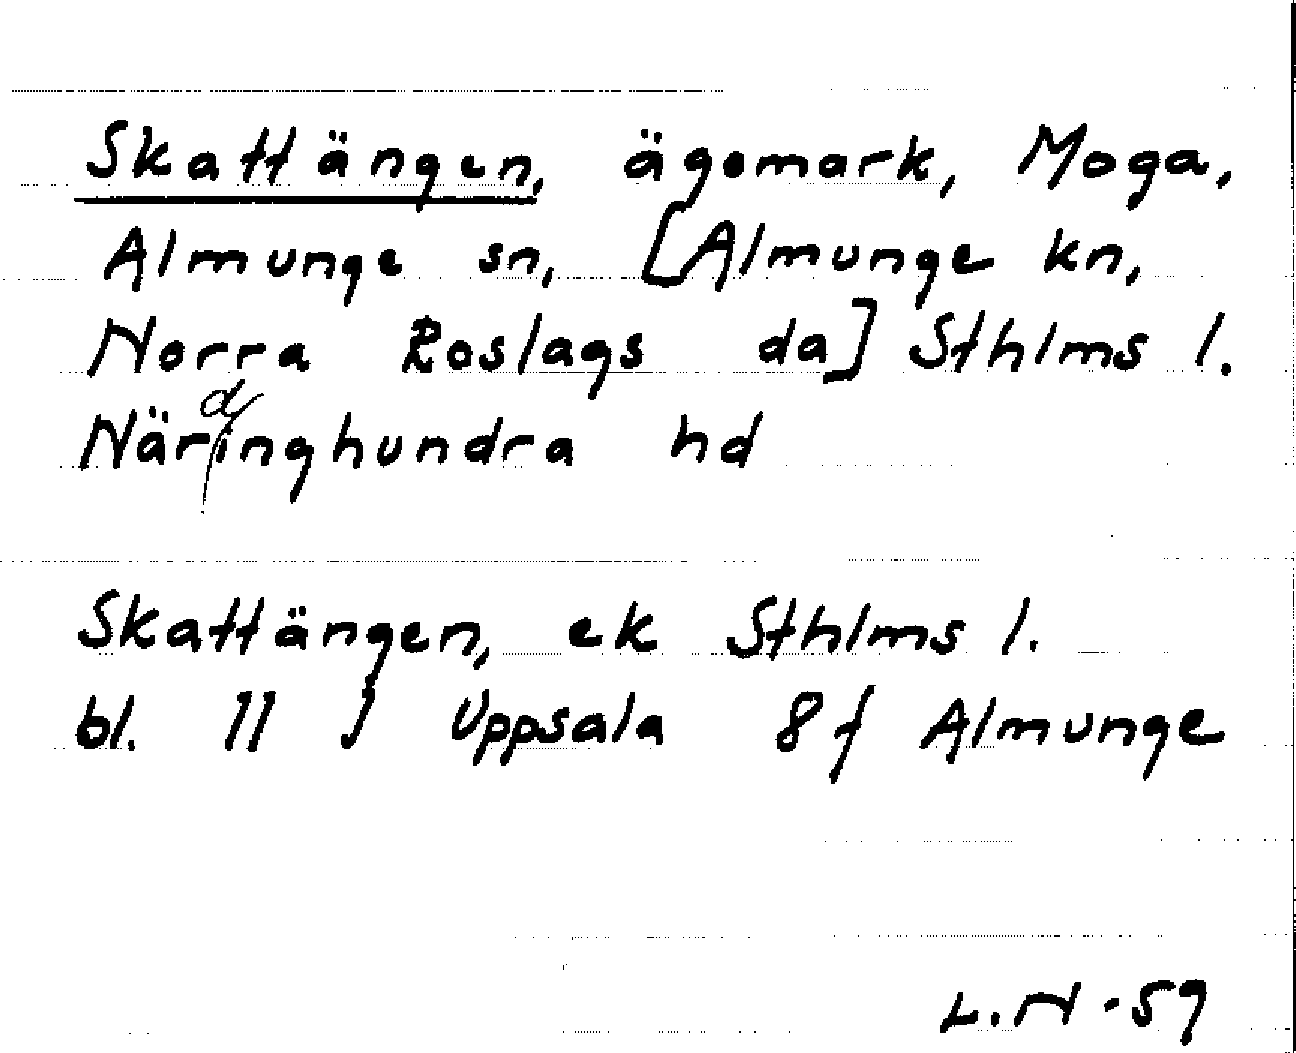 Skattängen, ägomark, Moga,
Almunge sn, [Almunge kn,
Norra Roslags da] Sthlms l.
Närdinghundra hd
Skattängen, ek Sthlms l.
bl. 11 J Uppsala 8 f Almunge
L.N -59